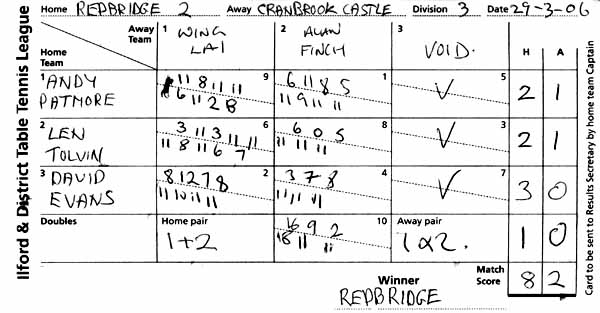 Ilford & District Table Tennis League
Home REDBRIDGE 2 Away CRANBROOK CASTLE Division 3 Date 29-3-06
Away Team 1 WING LAI 2 ALAN FINCH 3 VOID. H A
Home Team
1 ANDY PATMORE 9 11 8 11 11 1 6 11 8 5 5 V 2 1
6 11 2 8 11 9 11 11
2 LEN TOLVIN 6 3 11 3 11 11 8 6 0 5 3 V 2 1
11 8 11 6 7 11 11 11
3 DAVID EVANS 2 8 12 7 8 4 3 7 8 7 V 3 0
11 10 11 11 11 11 11
Doubles Home pair 10 Away pair
1+2 16 9 2 1 & 2. 1 0
18 11 11
Winner Match Score 8 2
REDBRIDGE
Card to be sent to Results Secretary by home team Captain